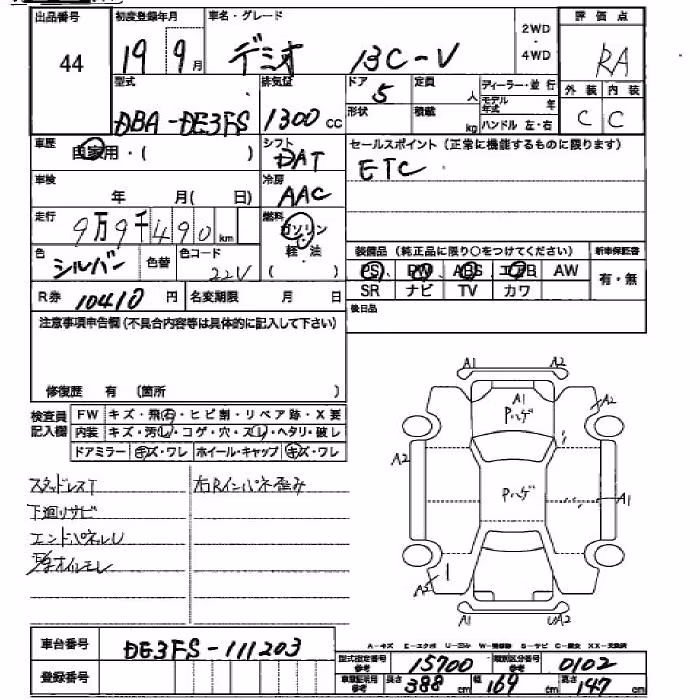 出品番号 44
初度登録年月 19 9月
車名・グレード デミオ 13C-V
2WD・4WD
評価点 RA
外装 C 内装 C
型式 DBA-DE3FS
排気量 1300 cc
ドア 5
形状
定員 人
積載 kg
ディーラー・並行
モデル年式 年
ハンドル 左・右
車歴 自家用・( )
シフト DAT
セールスポイント (正常に機能するものに限ります)
ETC
車検 年 月( 日)
冷房 AAC
走行 9万9千490 km
燃料 ガソリン 軽・油 ( )
色 シルバー 色替 色コード 22V
装備品 (純正品に限り○をつけてください) 新車保証書
PS、 PW、 ABS エアB AW 有・無
SR ナビ TV カワ
R券 10410 円 名変期限 月 日
後日品
注意事項申告欄 (不具合内容等は具体的に記入して下さい)
修復歴 有 (箇所 )
検査員記入欄
FW キズ・飛石・ヒビ割・リペア跡・X要
内装 キズ・汚レ・コゲ・穴・スレ・ヘタリ・破レ
ドアミラー キズ・ワレ ホイール・キャップ キズ・ワレ
スタッドレスT
右Rインパネ歪み
下廻リサビ
エンドパネルU
オイルモレ
A1 A2
A1
Pハゲ
A2
A2
Pハゲ
A1
A2
A1 UA2
A-キズ E-エクボ U-凹み W-補修跡 S-サビ C-腐食 XX-交換済
車台番号 DE3FS-111203
登録番号
型式指定番号 参考 15700 類別区分番号 参考 0102
車検証記載 参考 長さ 388 cm 幅 169 cm 高さ 147 cm